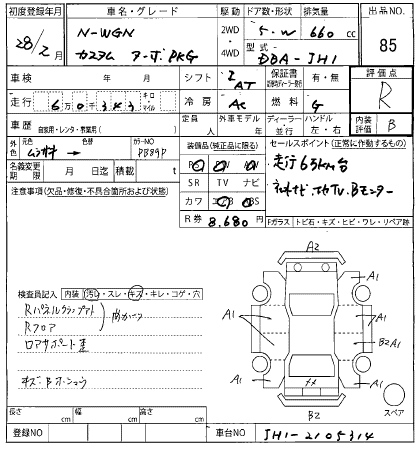 初度登録年月 車名・グレード 駆動 ドア数・形状 排気量 出品NO.
28/2月 N-WGN 2WD・4WD 5・W 660 cc 85
カスタム ターボPKG 型式 DBA-JH1
車検 年 月 シフト I AT 保証書 有・無 評価点
走行 6万0千343 キロ・マイル 冷房 AC 燃料 G R
車歴 自家用・レンタ・教業用( ) 定員 人 外車モデル 年 ディーラー 並行 ハンドル 左・右 内装評価 B
外色 元色 → 色替 カラーNO PB89P 装備品(純正品に限る) セールスポイント(正常に動作するもの)
名義変更期限 月 日迄 積載 t PS PW 走行65km台
注意事項(欠品・修復・不具合箇所および状態) SR TV ナビ ナビ TV. Bモニター
カワ エアB ABS
R券 8,680円 Fガラス トビ石・キズ・ヒビ・ワレ・リペア跡
A2
A1 A1
検査員記入 内装 汚レ・スレ・キズ・キレ・コゲ・穴
A1 A1
Rパネル
Rフロア
A1 B2A1
コアサポート歪
A1 A1
B2
スペア
長さ cm 幅 cm 高さ cm
登録NO 車台NO JH1-2105314